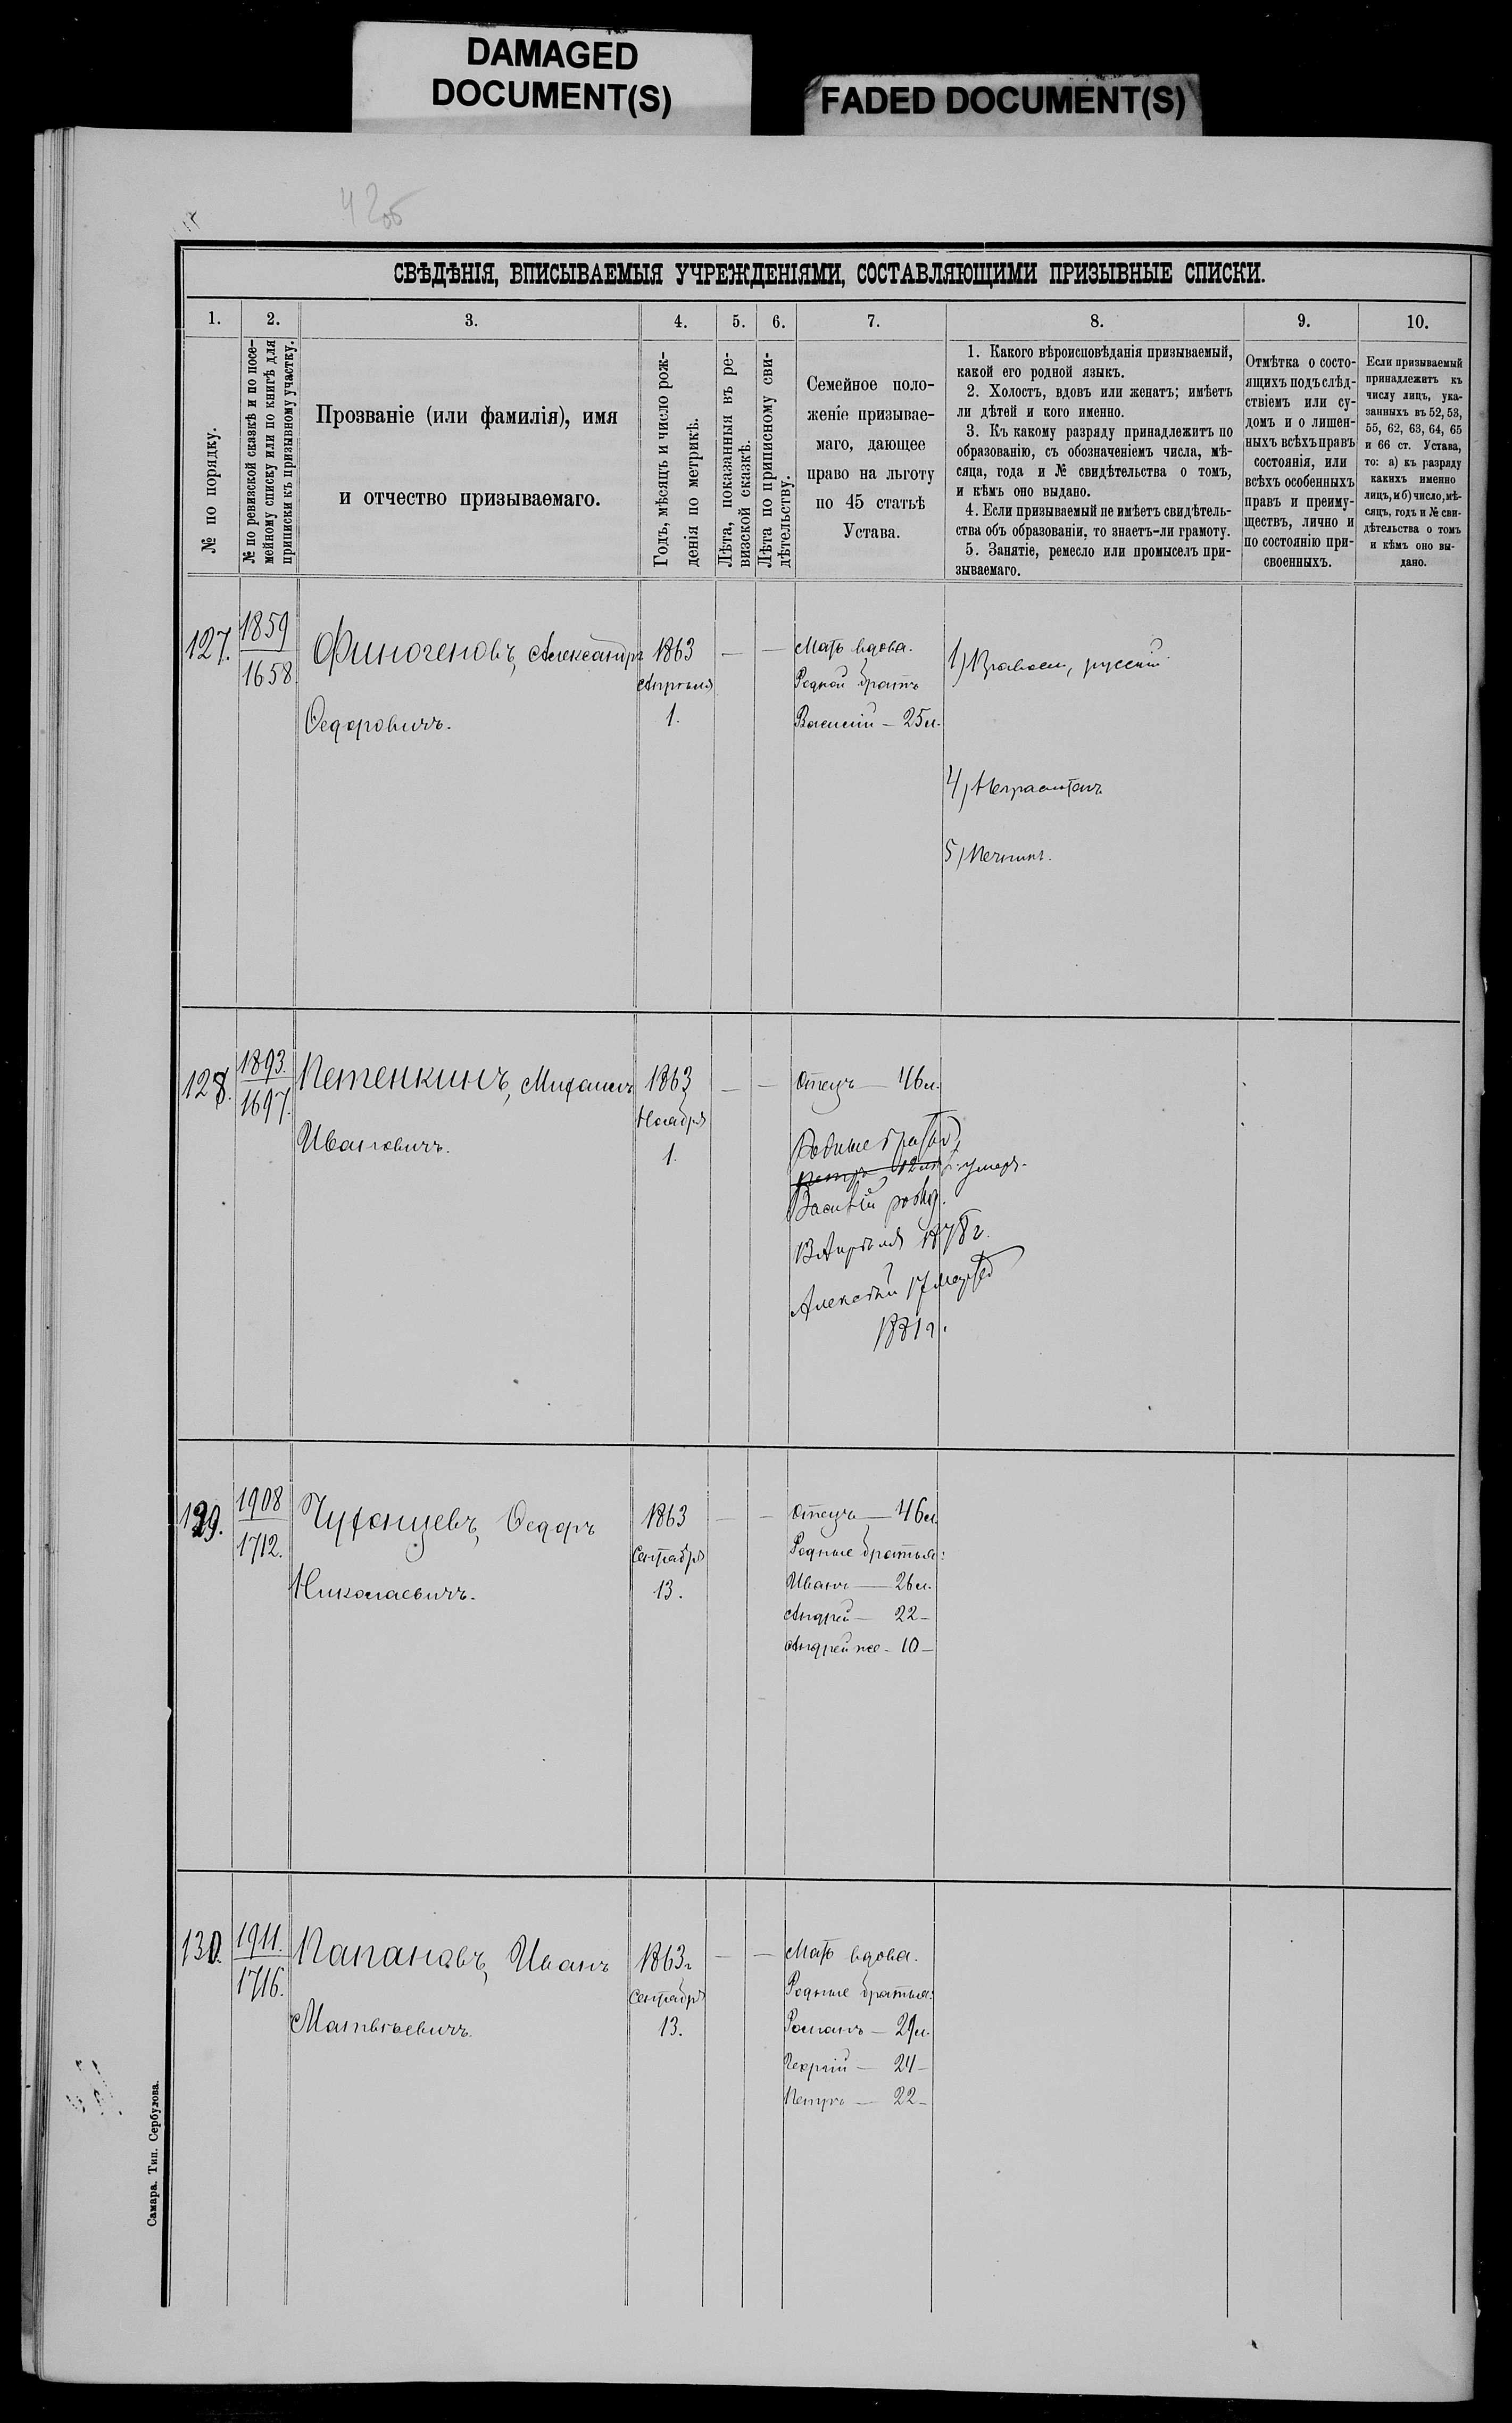 DAMAGED
DOCUMENT(S)
FADED DOCUMENT(S)
42об
СВѢДѢНІЯ, ВПИСЫВАЕМЫЯ УЧРЕЖДЕНІЯМИ, СОСТАВЛЯЮЩИМИ ПРИЗЫВНЫЕ СПИСКИ.
1.
2.
3.
4.
5.
6.
7.
8.
9.
10.
№ по порядку.
№ по ревизской сказкѣ и по посе-
мейному списку или по книгѣ для
приписки къ призывному участку.
Прозваніе (или фамилія), имя
и отчество призываемаго.
Годъ, мѣсяцъ и число рож-
денія по метрикѣ.
Лѣта, показанныя въ ре-
визской сказкѣ.
Лѣта по приписному сви-
дѣтельству.
Семейное поло-
женіе призывае-
маго, дающее
право на льготу
по 45 статьѣ
Устава.
1. Какого вѣроисповѣданія призываемый,
какой его родной языкъ.
2. Холостъ, вдовъ или женатъ; имѣетъ
ли дѣтей и кого именно.
3. Къ какому разряду принадлежитъ по
образованію, съ обозначеніемъ числа, мѣ-
сяца, года и № свидѣтельства о томъ,
и кѣмъ оно выдано.
4. Если призываемый не имѣетъ свидѣтель-
ства объ образованіи, то знаетъ-ли грамоту.
5. Занятіе, ремесло или промыселъ при-
зываемаго.
Отмѣтка о состо-
ящихъ подъ слѣд-
ствіемъ или су-
домъ и о лишен-
ныхъ всѣхъ правъ
состоянія, или
всѣхъ особенныхъ
правъ и преиму-
ществъ, лично и
по состоянію при-
своенныхъ.
Если призываемый
принадлежитъ къ
числу лицъ, ука-
занныхъ въ 52, 53,
55, 62, 63, 64, 65
и 66 ст. Устава,
то: а) къ разряду
какихъ именно
лицъ, и б) число, мѣ-
сяцъ, годъ и № сви-
дѣтельства о томъ
и кѣмъ оно вы-
дано.
127.
1859
1658
Финогеновъ, Александръ
Ѳедоровичъ.
1863
Апрѣля
1.
—
—
Мать вдова.
Родной братъ
Василій — 25 л.
1) Правосл, русскій
4) Неграмотенъ
5) Печникъ.
128.
1893.
1697.
Петенкинъ, Михаилъ
Ивановичъ.
1863
Ноября
1.
—
—
Отецъ — 46 л.
Родные братья,
Петръ 12 л. умеръ.
Василій рожд.
13 Апрѣля 1878 г.
Алексѣй 17 марта
1881 г.
129.
1908
1712.
Чуфонцевъ, Ѳедоръ
Николаевичъ.
1863
Сентября
13.
—
—
Отецъ — 46 л.
Родные братья:
Иванъ — 26 л.
Андрей — 22 —
Андрей же — 10 —
130.
1911.
1716.
Папановъ, Иванъ
Матвѣевичъ.
1863 г
Сентября
13.
—
—
Мать вдова.
Родные братья:
Романъ — 29 л.
Георгій — 24 —
Петръ — 22 —
Самара. Тип. Сербулова.